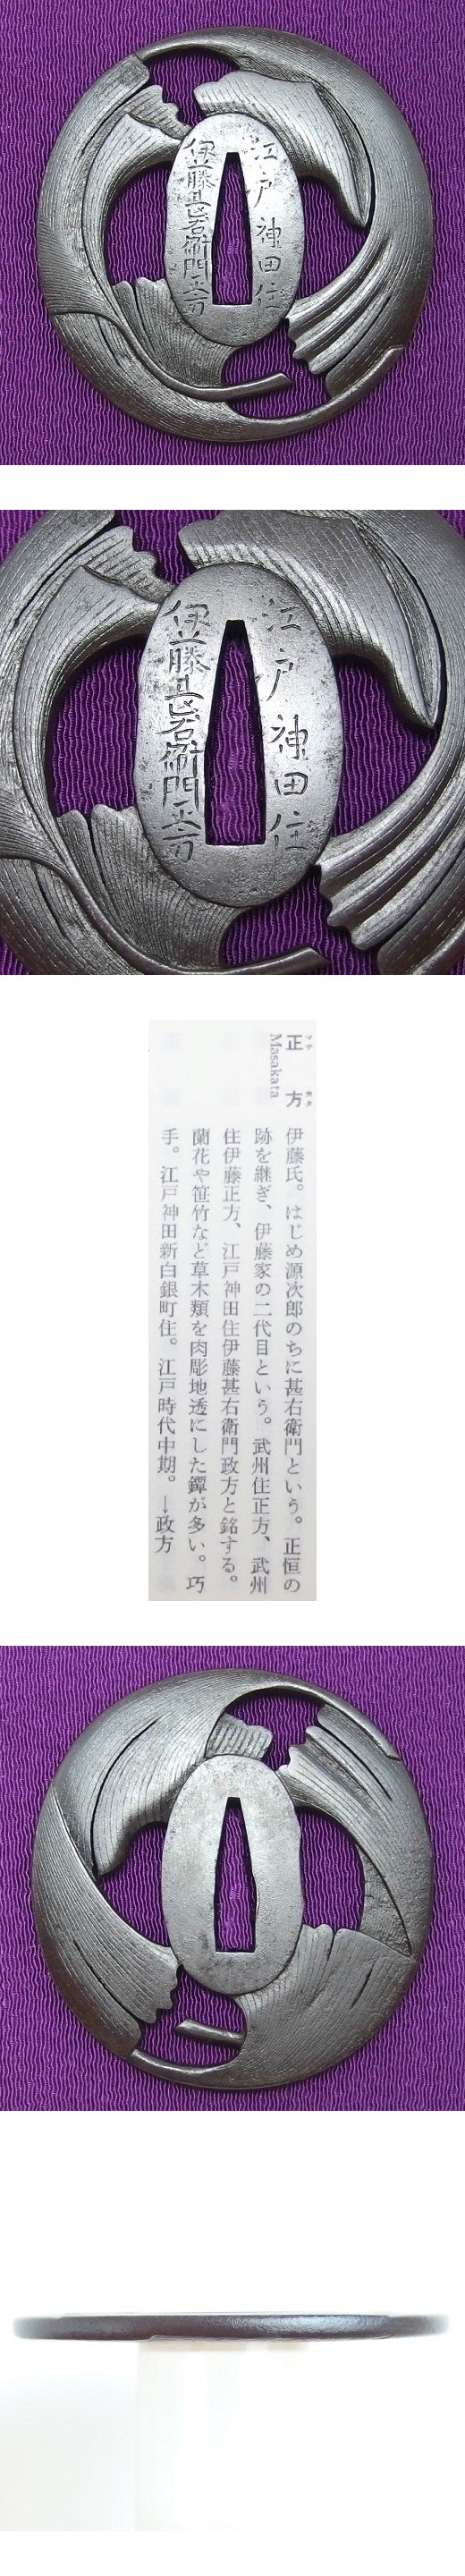 江戸神田住
伊藤甚右衛門正方
江戸神田住
伊藤甚右衛門正方
正方
Masakata
伊藤氏。はじめ源次郎のちに甚右衛門という。正恒の
跡を継ぎ、伊藤家の二代目という。武州住正方、武州
住伊藤正方、江戸神田住伊藤甚右衛門政方と銘する。
蘭花や笹竹など草木類を肉彫地透にした鐔が多い。巧
手。江戸神田新白銀町住。江戸時代中期。→政方